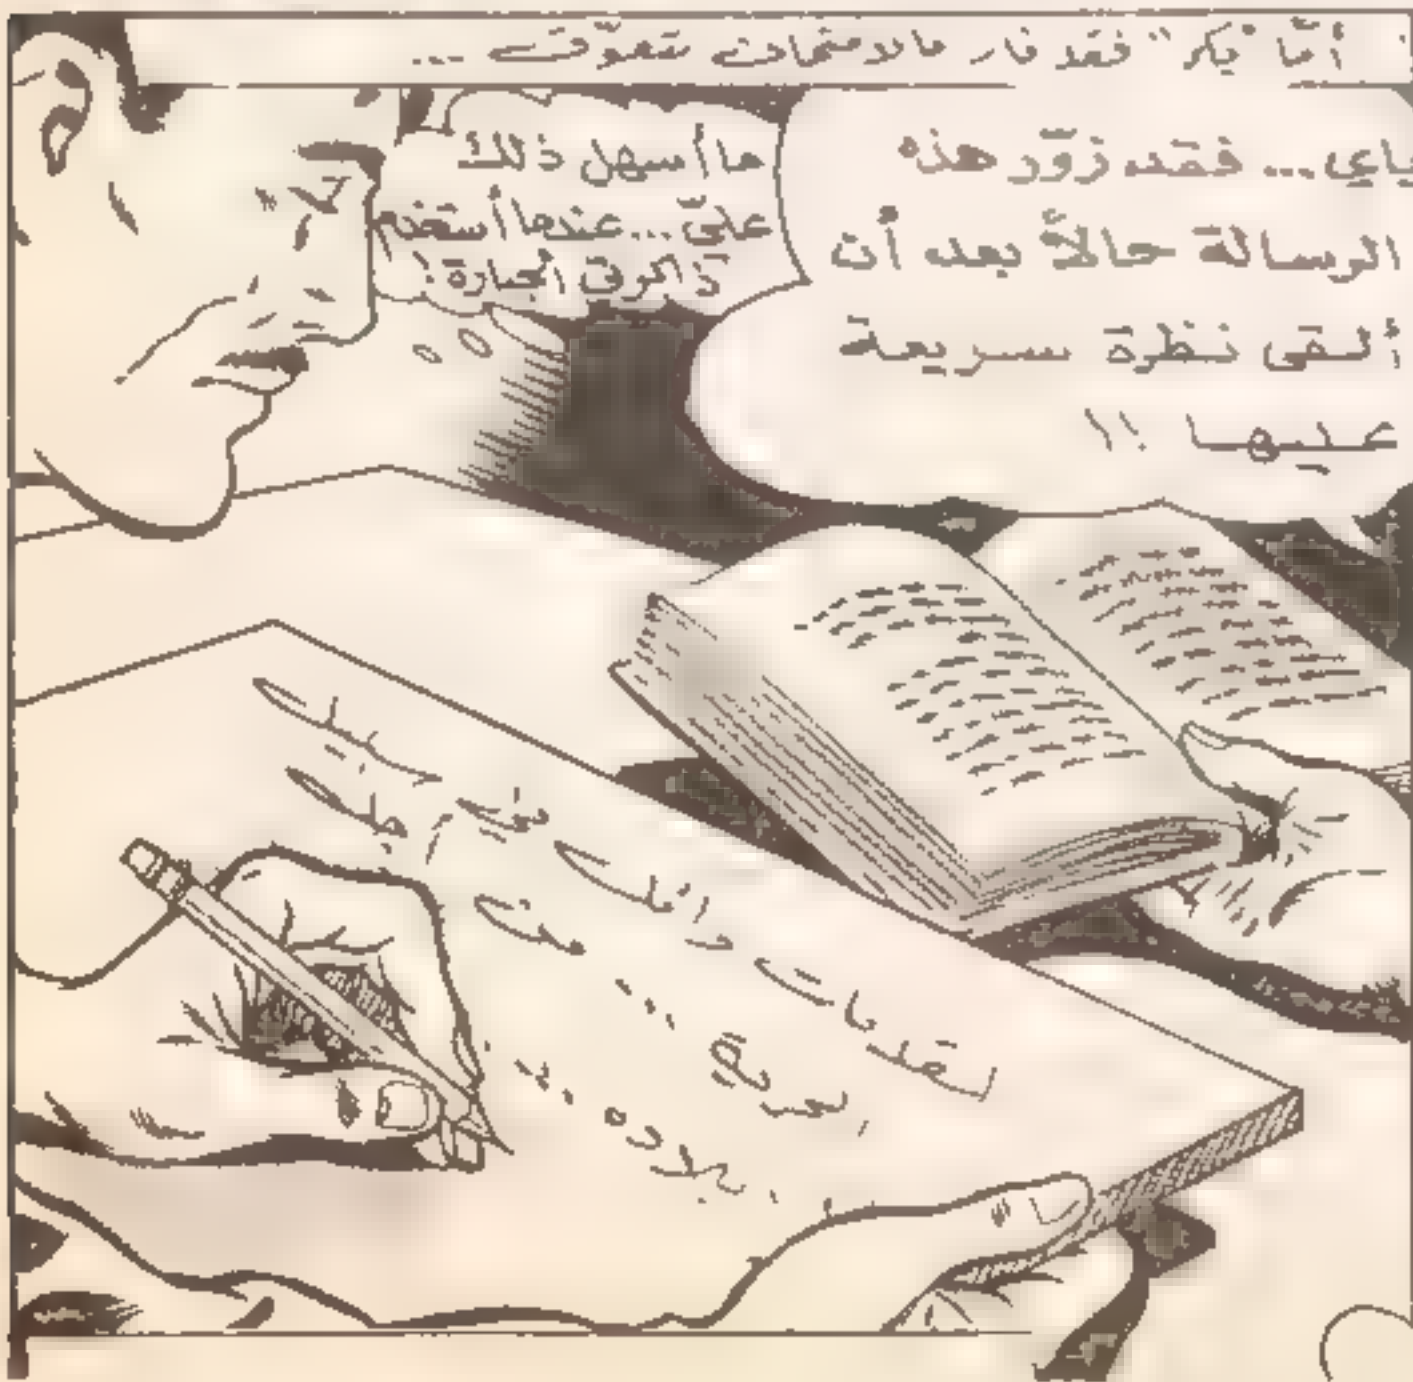 أمّا "بكر" فقد فاز بالامتحان بتفوّق ...
ياي... فقد زوّر هذه
الرسالة حالاً بعد أن
ألقى نظرة سريعة
عليها !!
ما أسهل ذلك
عليّ... عندما أستخدم
ذاكرتي الجبارة!
لقد مات وائل في سبيل
الحرية ... من أجل
بلاده ...